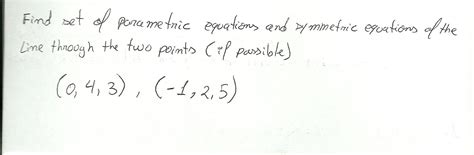 Find set of parametric equations and symmetric equations of the
Line through the two points (if possible)
(0, 4, 3) , (-1, 2, 5)